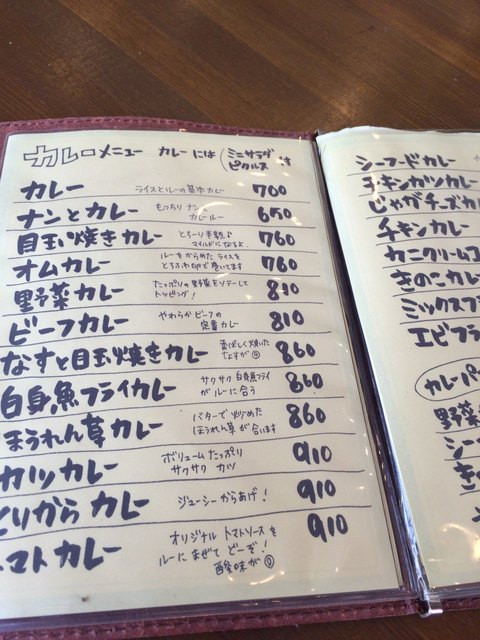 カレーメニュー カレーには ミニサラダ ピクルス 付
カレー ライスとルーの基本カレー 700
ナンとカレー もっちりナンと カレールー 650
目玉焼きカレー とろーり半熟♪ マイルドになるよ 760
オムカレー ルーをからめたライスを とろふわ卵で巻いてます 760
野菜カレー たっぷりの野菜をソテーして トッピング! 810
ビーフカレー やわらかビーフの 定番カレー 810
なすと目玉焼きカレー 香ばしく焼いた なすが 860
白身魚フライカレー サクサク白身魚フライ がルーに合う 860
ほうれん草カレー バターで炒めた ほうれん草が合います 860
カツカレー ボリュームたっぷり サクサク カツ 910
とりから カレー ジューシーからあげ! 910
トマトカレー オリジナル トマトソースを ルーにまぜて どーぞ! 酸味が 910
シーフードカレー
チキンカツカレー
じゃがチーズカレ
チキンカレー
カニクリームコ
きのこカレー
ミックスフ
エビフラ
カレーパ
野菜
シー
きの